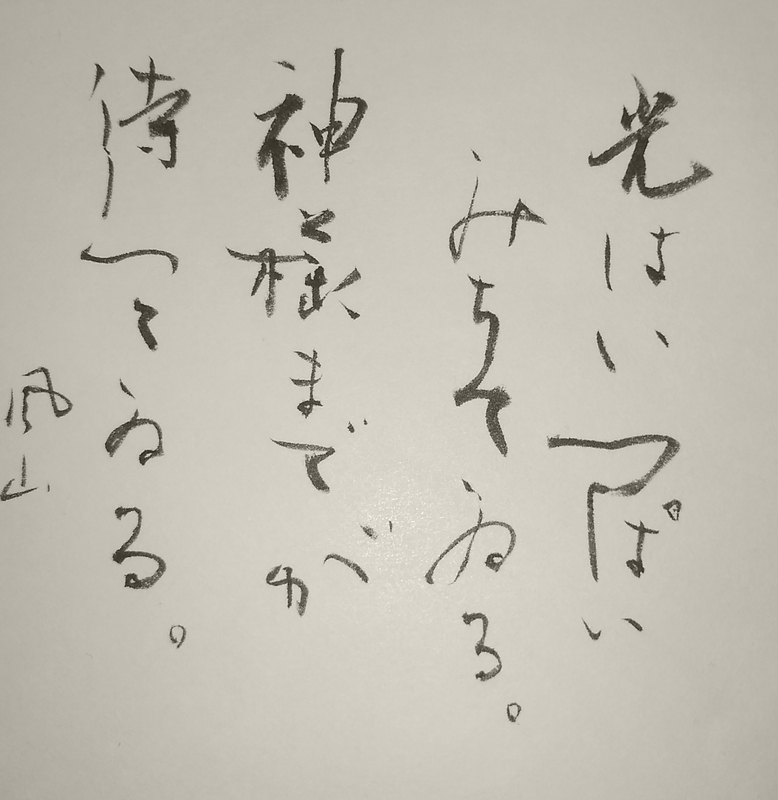 光はいっぱい
みちてゐる。
神様までが
待つてゐる。
風山